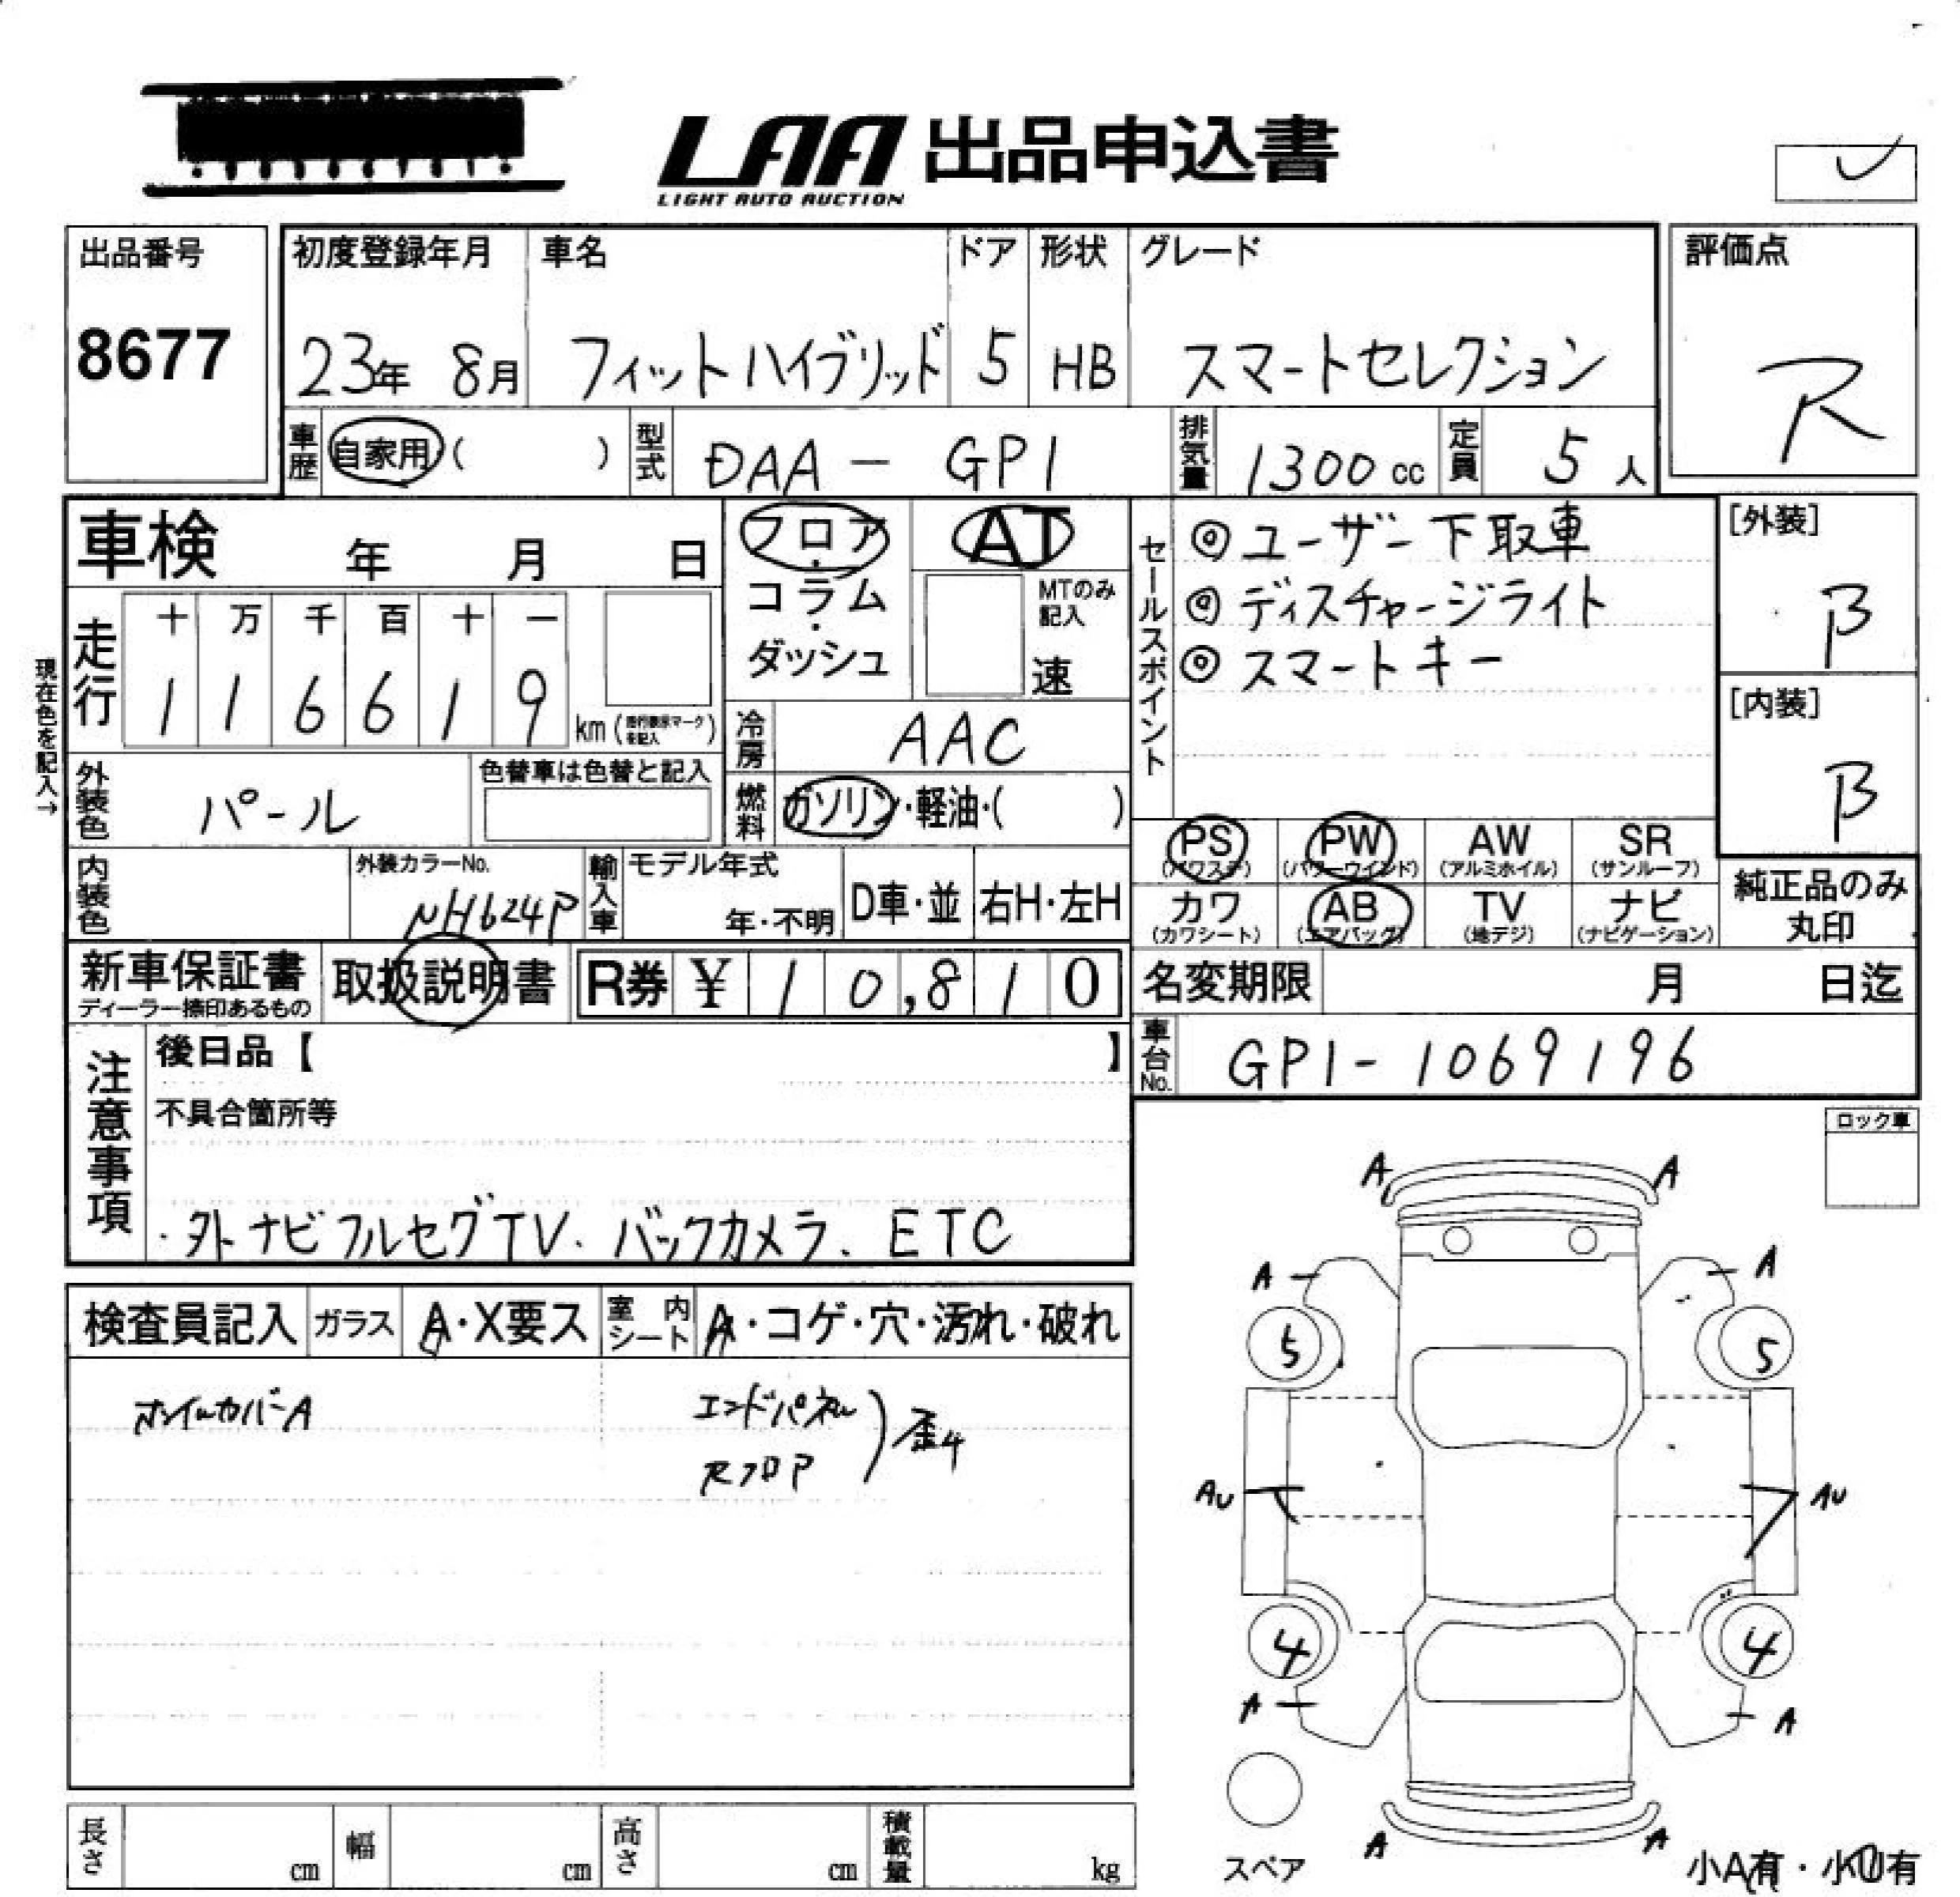 LAA 出品申込書
LIGHT AUTO AUCTION
出品番号
8677
初度登録年月 車名 ドア 形状 グレード
23年 8月 フィットハイブリッド 5 HB スマートセレクション
評価点
R
車歴 自家用 ( ) 型式 DAA - GP1 排気量 1300 cc 定員 5 人
車検 年 月 日
フロア・コラム・ダッシュ
AT
MTのみ記入
速
セールスポイント
◎ ユーザー下取車
◎ ディスチャージライト
◎ スマートキー
[外装]
B
[内装]
B
現在色を記入→
走行
十 万 千 百 十 一
1 1 6 6 1 9 km (走行表示マークを記入)
冷房 AAC
外装色 パール
色替車は色替と記入
燃料 ガソリン・軽油・( )
PS (パワステ) PW (パワーウインド) AW (アルミホイル) SR (サンルーフ)
カワ (カワシート) AB (エアバッグ) TV (地デジ) ナビ (ナビゲーション)
純正品のみ丸印
内装色
外装カラーNo. NH624P
輸入車 モデル年式 年・不明 D車・並 右H・左H
新車保証書
ディーラー捺印あるもの
取扱説明書
R券 ¥ 10,810
名変期限 月 日迄
車台No. GP1-1069196
注意事項
後日品【 】
不具合箇所等
・外ナビフルセグTV、バックカメラ、ETC
ロック車
検査員記入 ガラス A・X要ス 室内シート A・コゲ・穴・汚れ・破れ
ホイルカバーA
エンドパネル
Rフロア
歪4
A A
A A
5 5
AU AU
4 4
A A
A A
スペア
小A有・小U有
長さ cm 幅 cm 高さ cm 積載量 kg